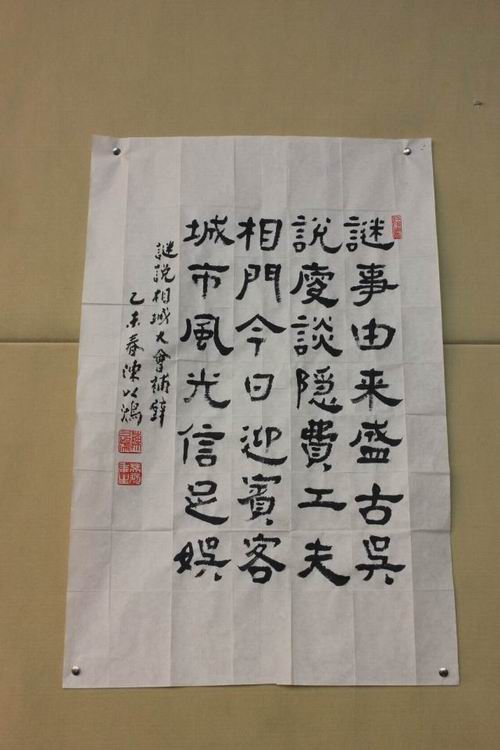 謎事由来盛古吳
說廋談隐費工夫
相門今日迎賓客
城市風光信足娛
謎說相城大會補壁
乙未春陳以鴻